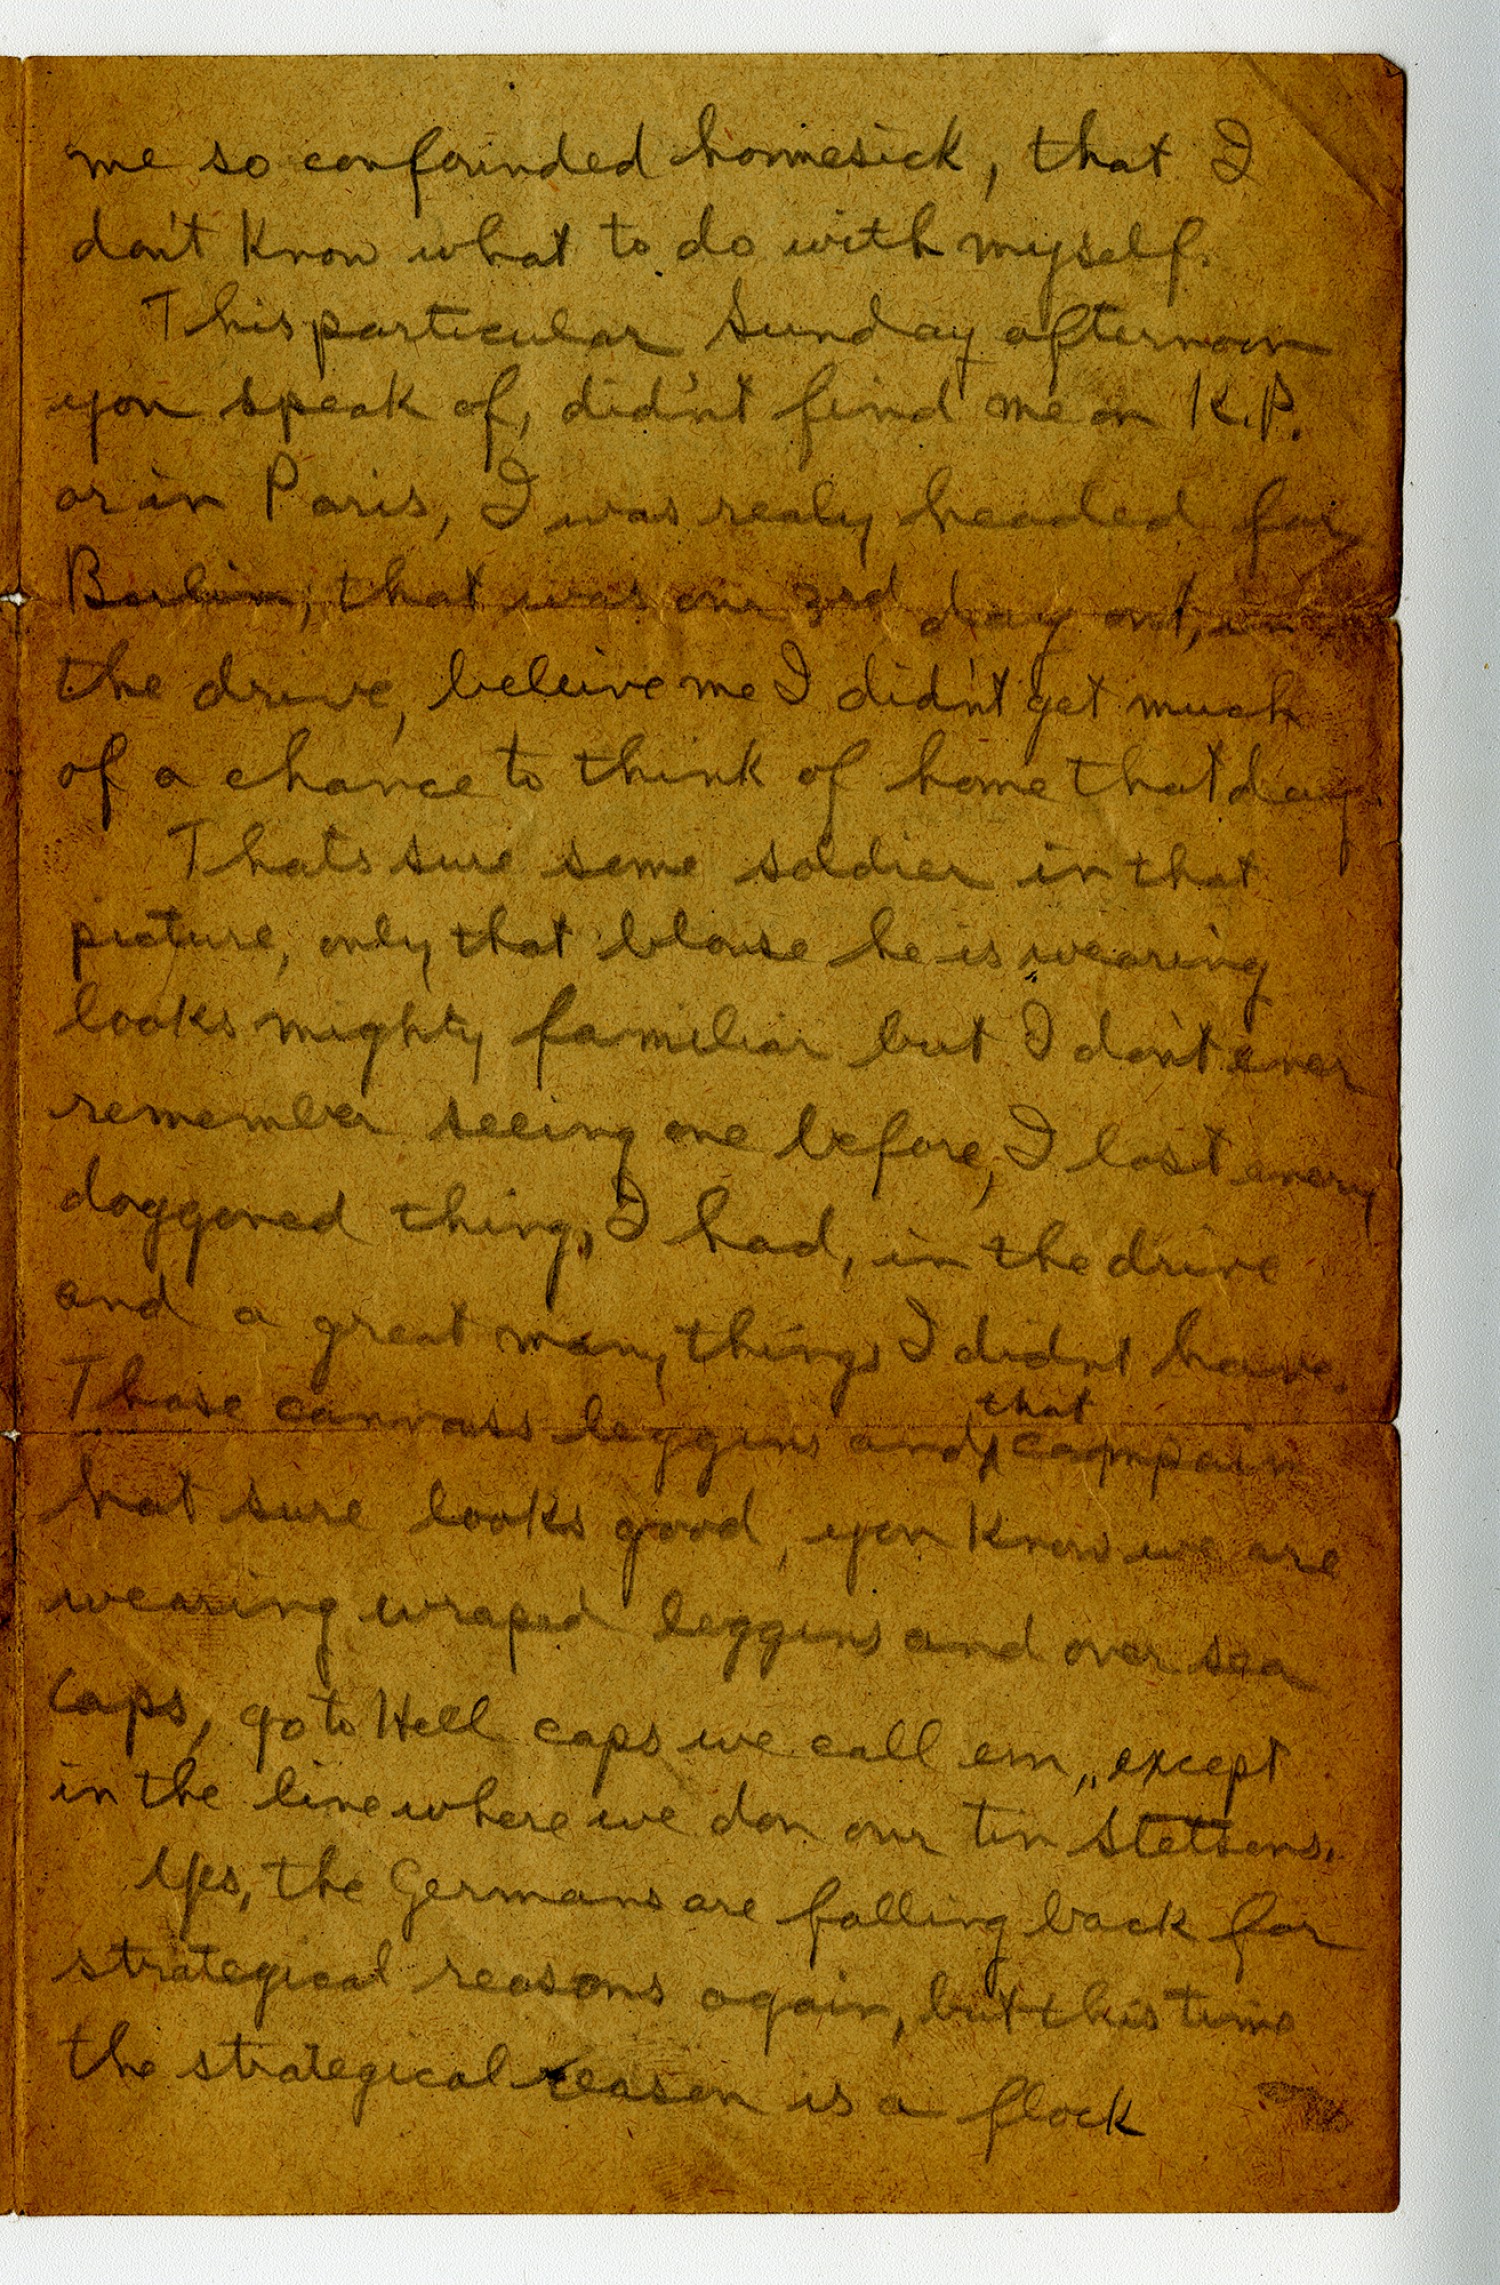 me so confounded homesick, that I
don't know what to do with myself.
This particular Sunday afternoon
you speak of, did'nt find me on K.P.
or in Paris, I was realy headed for
Berlin, that was our 3rd day out, in
the drive, beleive me I didn't get much
of a chance to think of home that day.
Thats sure some soldier in that
picture, only that blouse he is wearing
looks mighty familiar but I don't ever
remember seeing one before, I lost every
doggoned thing, I had, in the drive
and a great many things I didnt have.
Those canvass leggins and that campain
hat sure looks good, you know we are
wearing wraped leggins and over sea
caps, go to Hell caps we call em, except
in the line where we don our tin Stetsons.
Yes, the Germans are falling back for
strategical reasons again, but this time
the strategical reason is a flock